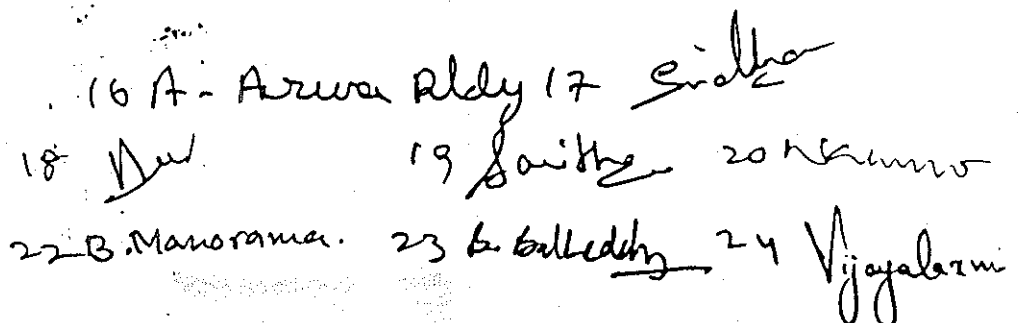 16 A. Aruna Reddy 17 Sridha
18 19 Savitha 20
22 B. Manorama. 23 B. Balreddy 24 Vijayalaxmi